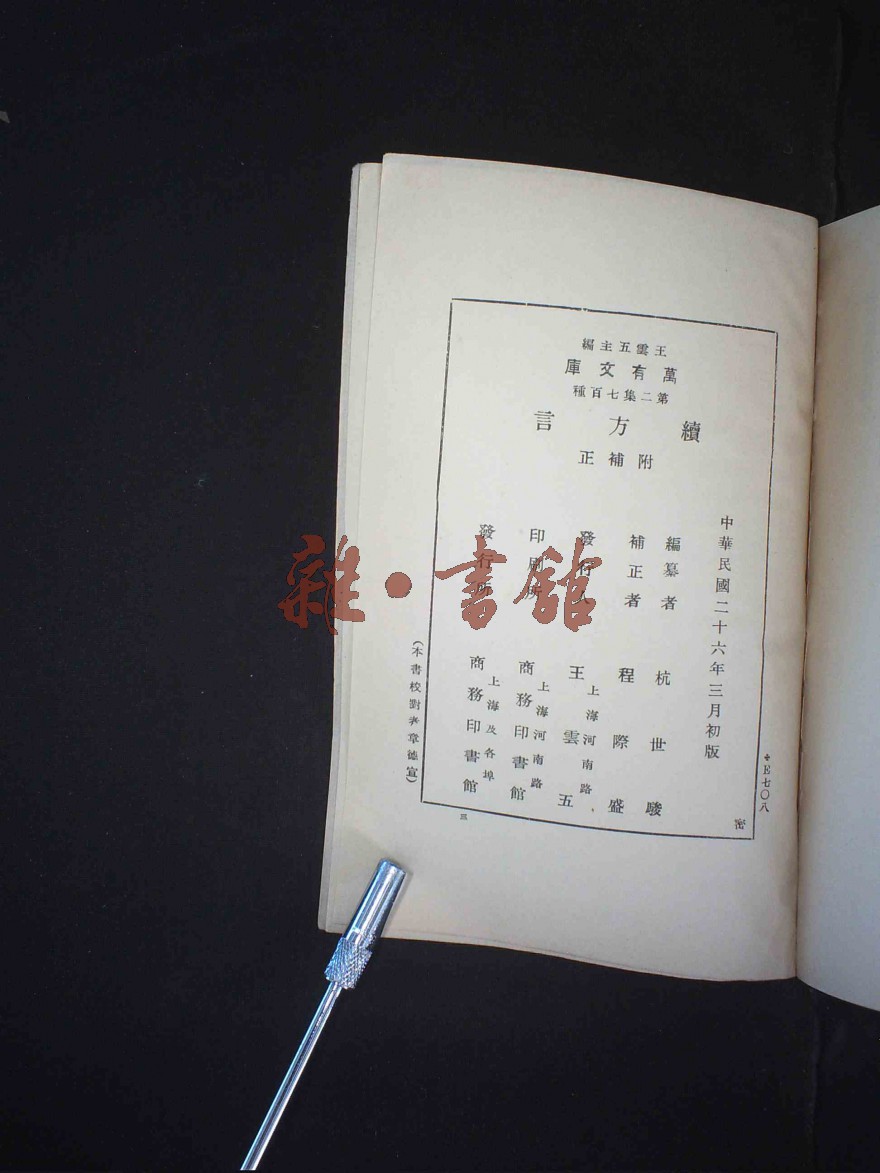 王雲五主編
萬有文庫
第二集七百種
續方言
附補正
中華民國二十六年三月初版
編纂者 杭世駿
補正者 程際盛
發行人 王雲五
上海河南路
印刷所 商務印書館
上海河南路
發行所 商務印書館
上海及各埠
(本書校對者章德宣)
E七〇八
密
雜·書館